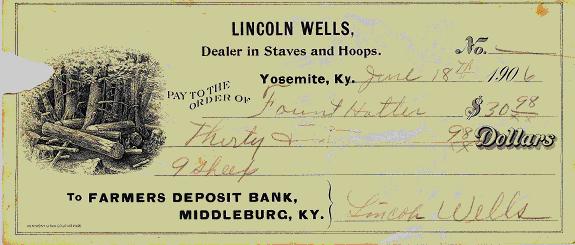 LINCOLN WELLS,
Dealer in Staves and Hoops.
No.
Yosemite, Ky. June 18th 1906
PAY TO THE
ORDER OF Fount Hatter $30 98/xx
Thirty & 98/xx Dollars
9 Sheep
To FARMERS DEPOSIT BANK,
MIDDLEBURG, KY.
Lincoln Wells